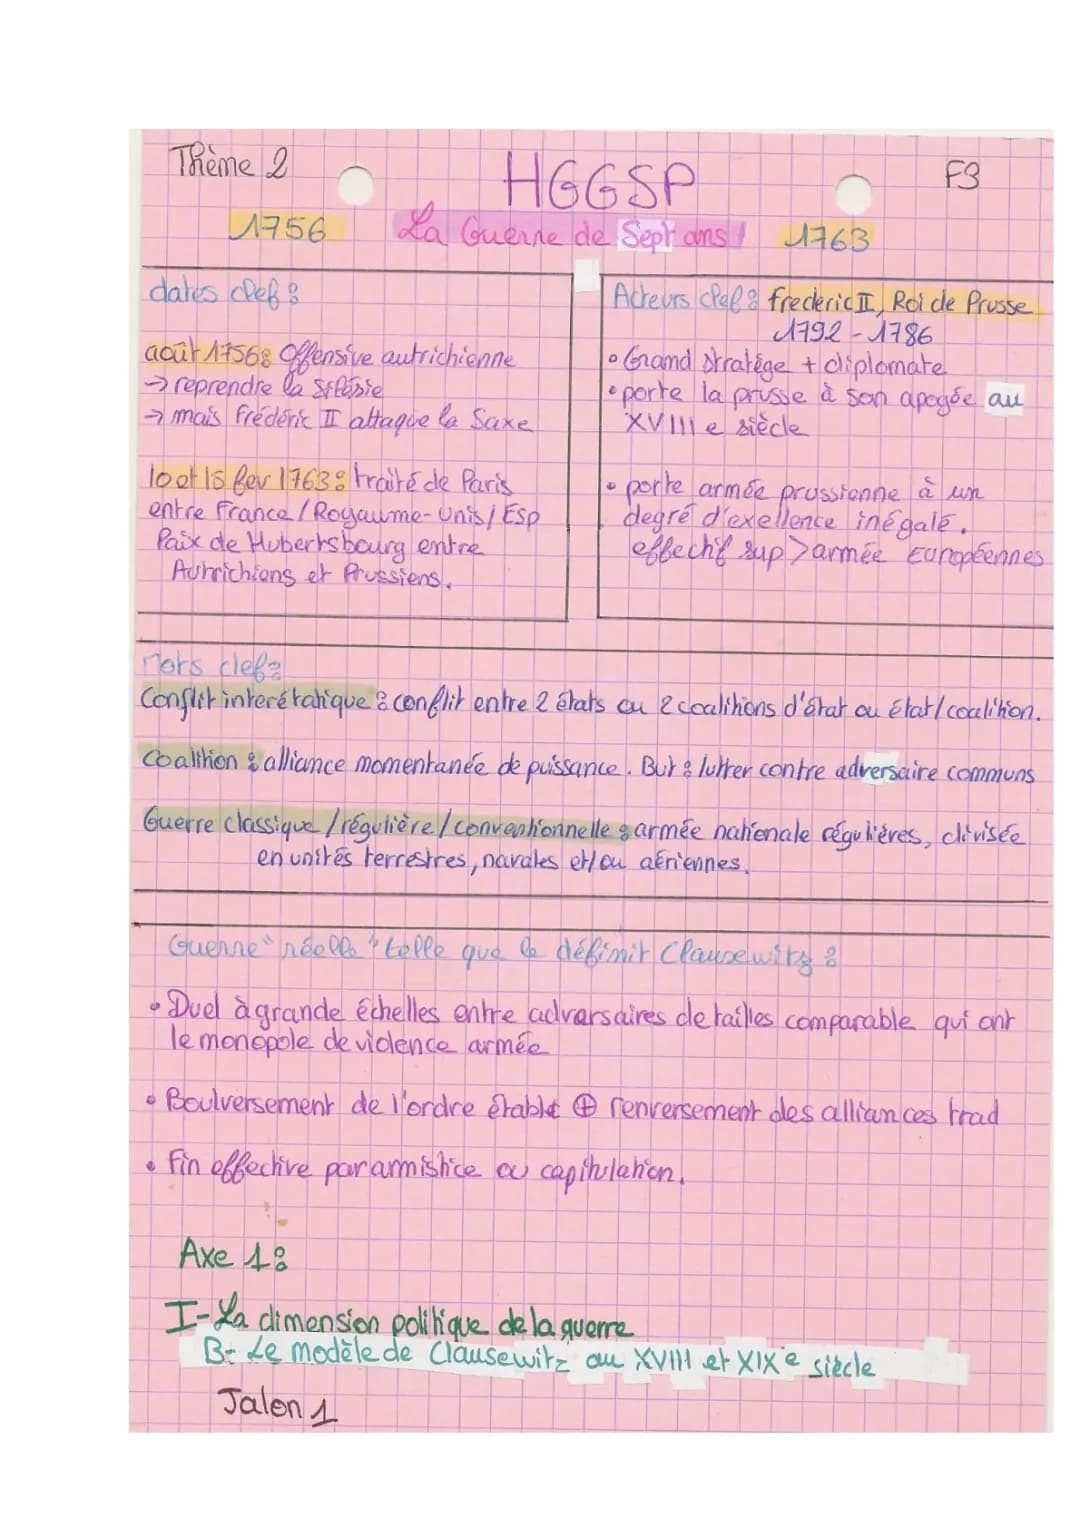 Thème 2
HGGSP
F3
1756
La Guerre de Sept ans
1763
dates clef :
août 1756 : Offensive autrichienne
→ reprendre la Silésie
→ mais Frédéric II attaque la Saxe
10 et 15 fev 1763 : traité de Paris
entre France / Royaume-Unis / Esp
Paix de Hubertsbourg entre
Autrichiens et Prussiens.
Acteurs clef : frederic II, Roi de Prusse
1792 - 1786
• Grand stratège + diplomate
• porte la prusse à son apogée au
XVIII e siècle
• porte armée prussienne à un
degré d'exellence inégalé.
effectif sup > armée Européennes
Mots clef :
Conflit interétatique : conflit entre 2 états ou 2 coalitions d'état ou état/coalition.
Coalition : alliance momentanée de puissance. But : lutter contre adversaire communs
Guerre classique / régulière / conventionnelle : armée nationale régulières, divisée
en unités terrestres, navales et/ou aériennes.
Guerre "réelle" telle que le définit Clausewitz :
• Duel à grande échelles entre adversaires de tailles comparable qui ont
le monopole de violence armée
• Boulversement de l'ordre établit ⊕ renversement des alliances trad
• Fin effective par armistice ou capitulation.
Axe 1 :
I- La dimension politique de la guerre
B- Le modèle de Clausewitz au XVIII et XIXe siècle
Jalon 1